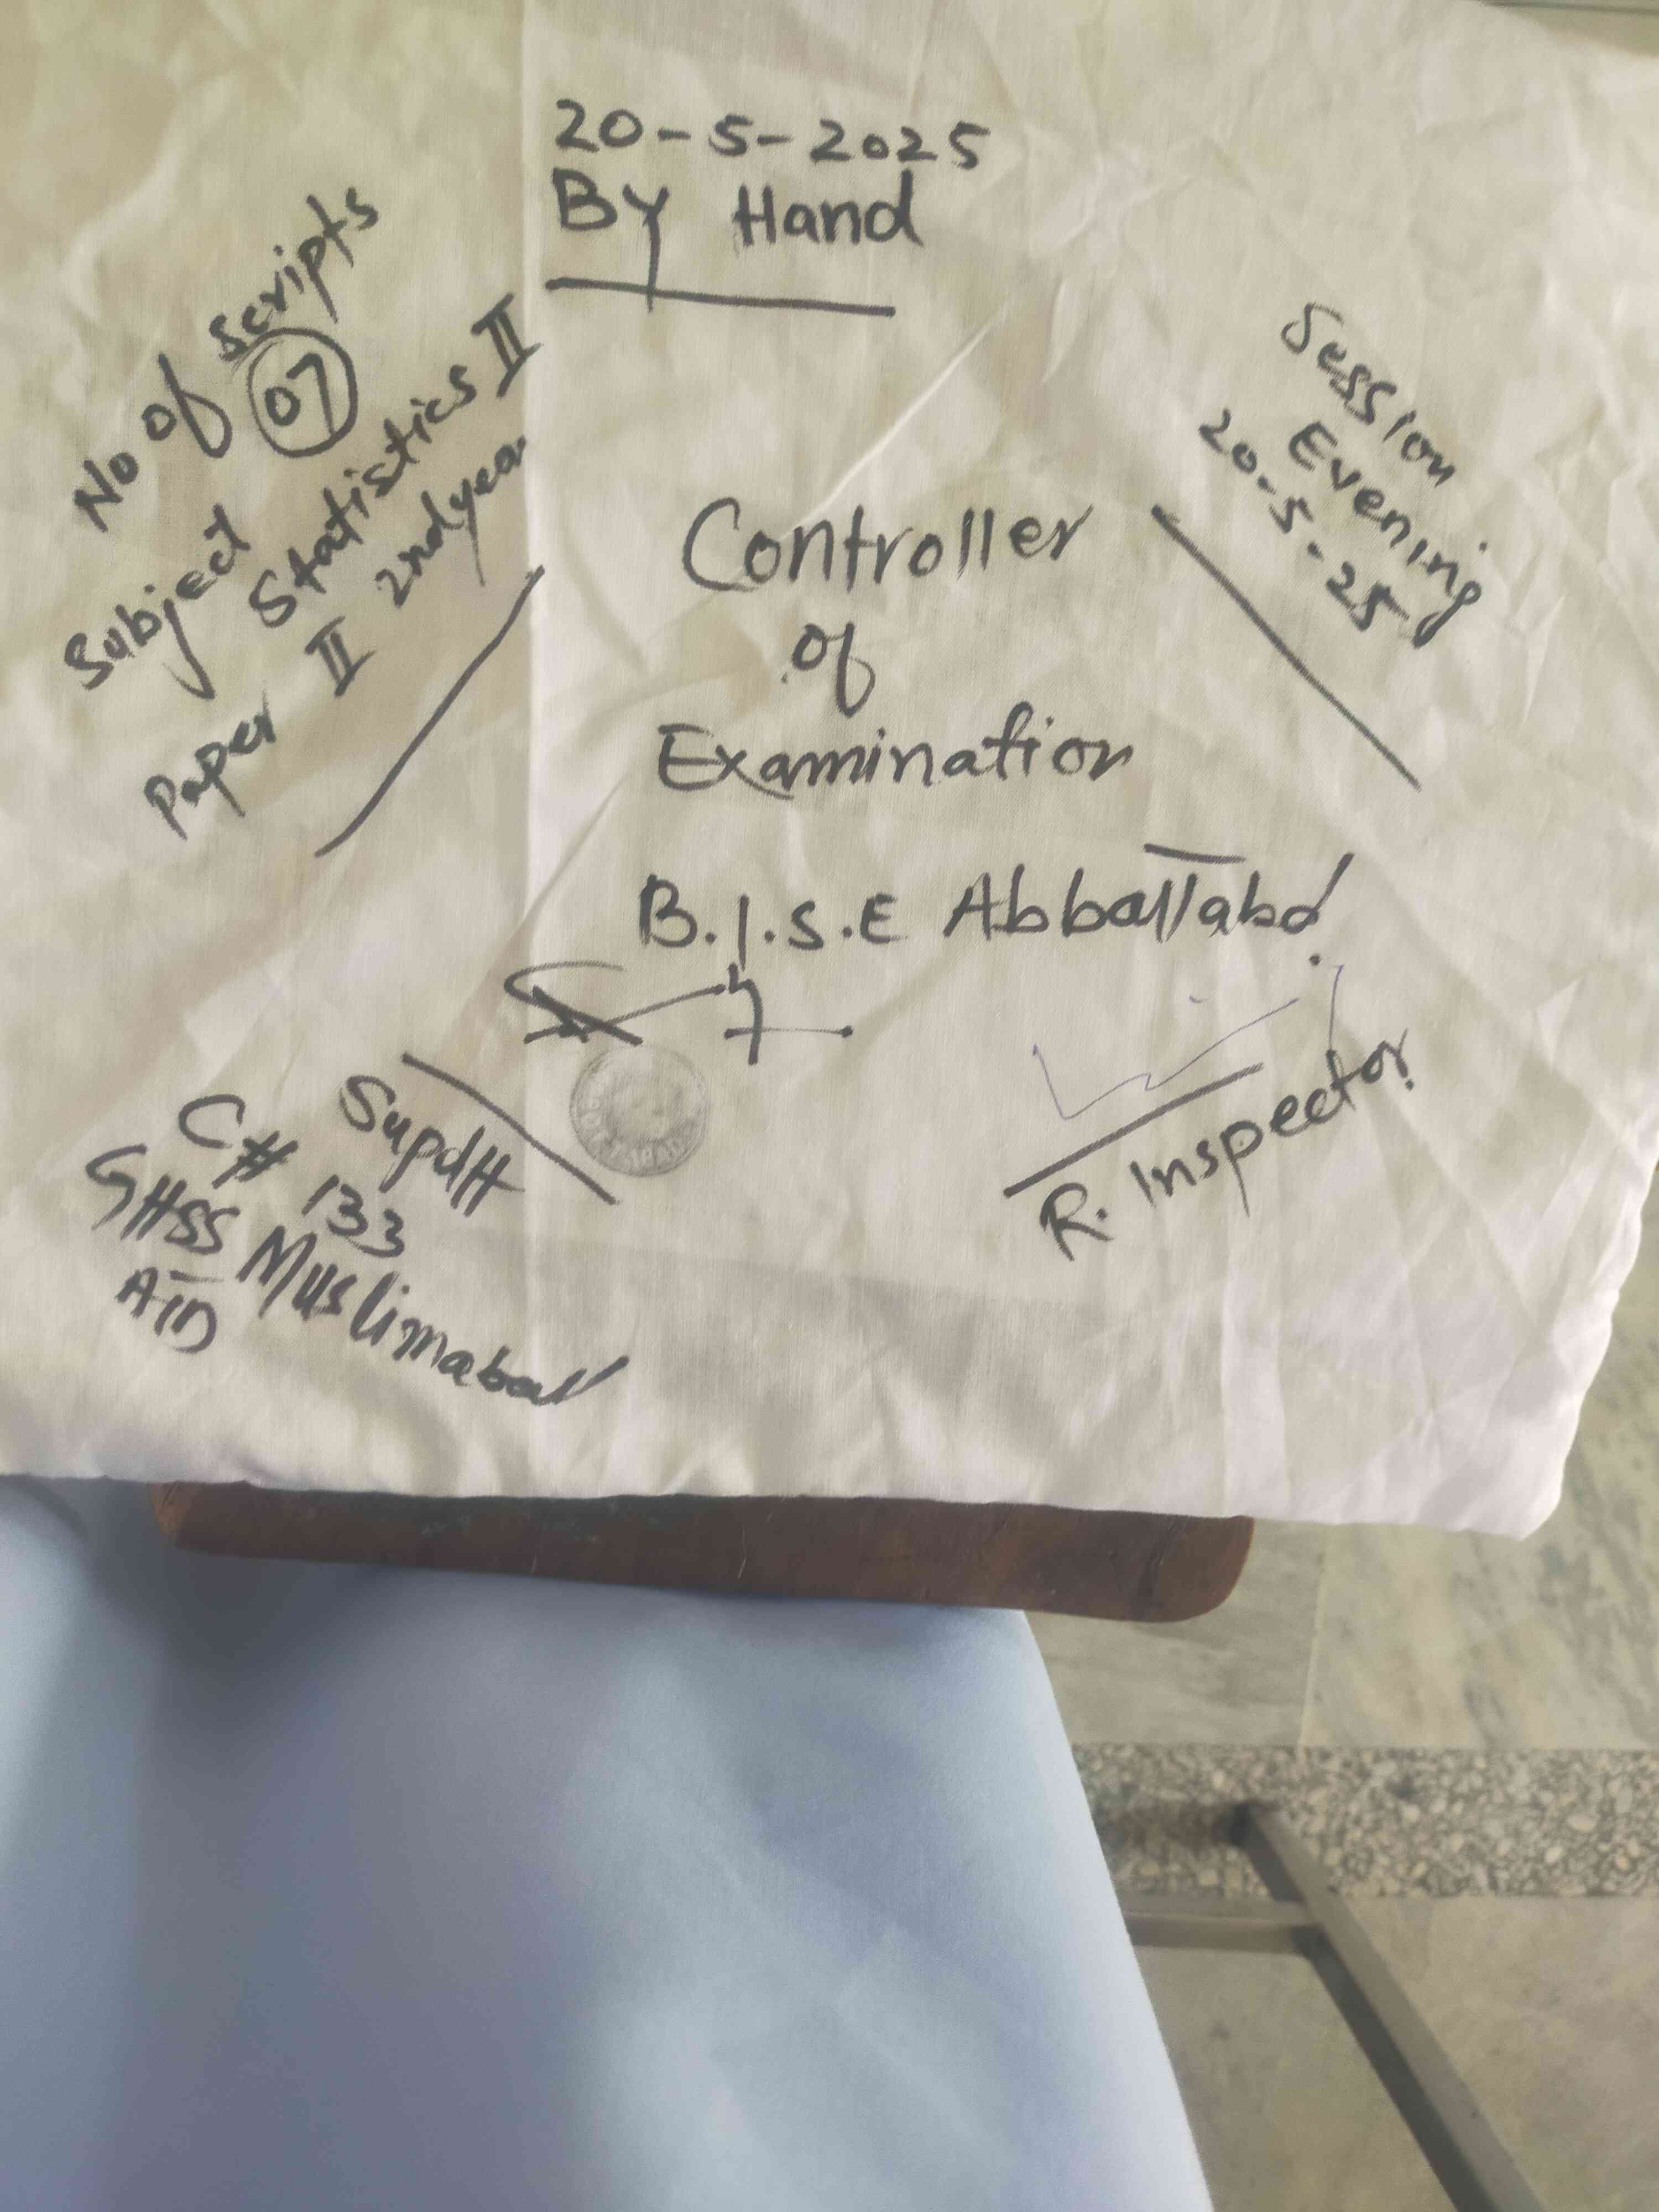 20-5-2025
By Hand
No of Scripts
07
Subject
Statistics II
Paper II 2ndyear
Session
Evening
20-5-25
Controller
of
Examination
B.I.S.E Abbottabd
Supdtt
C# 133
GHSS Muslimabad
ATD
R. Inspector